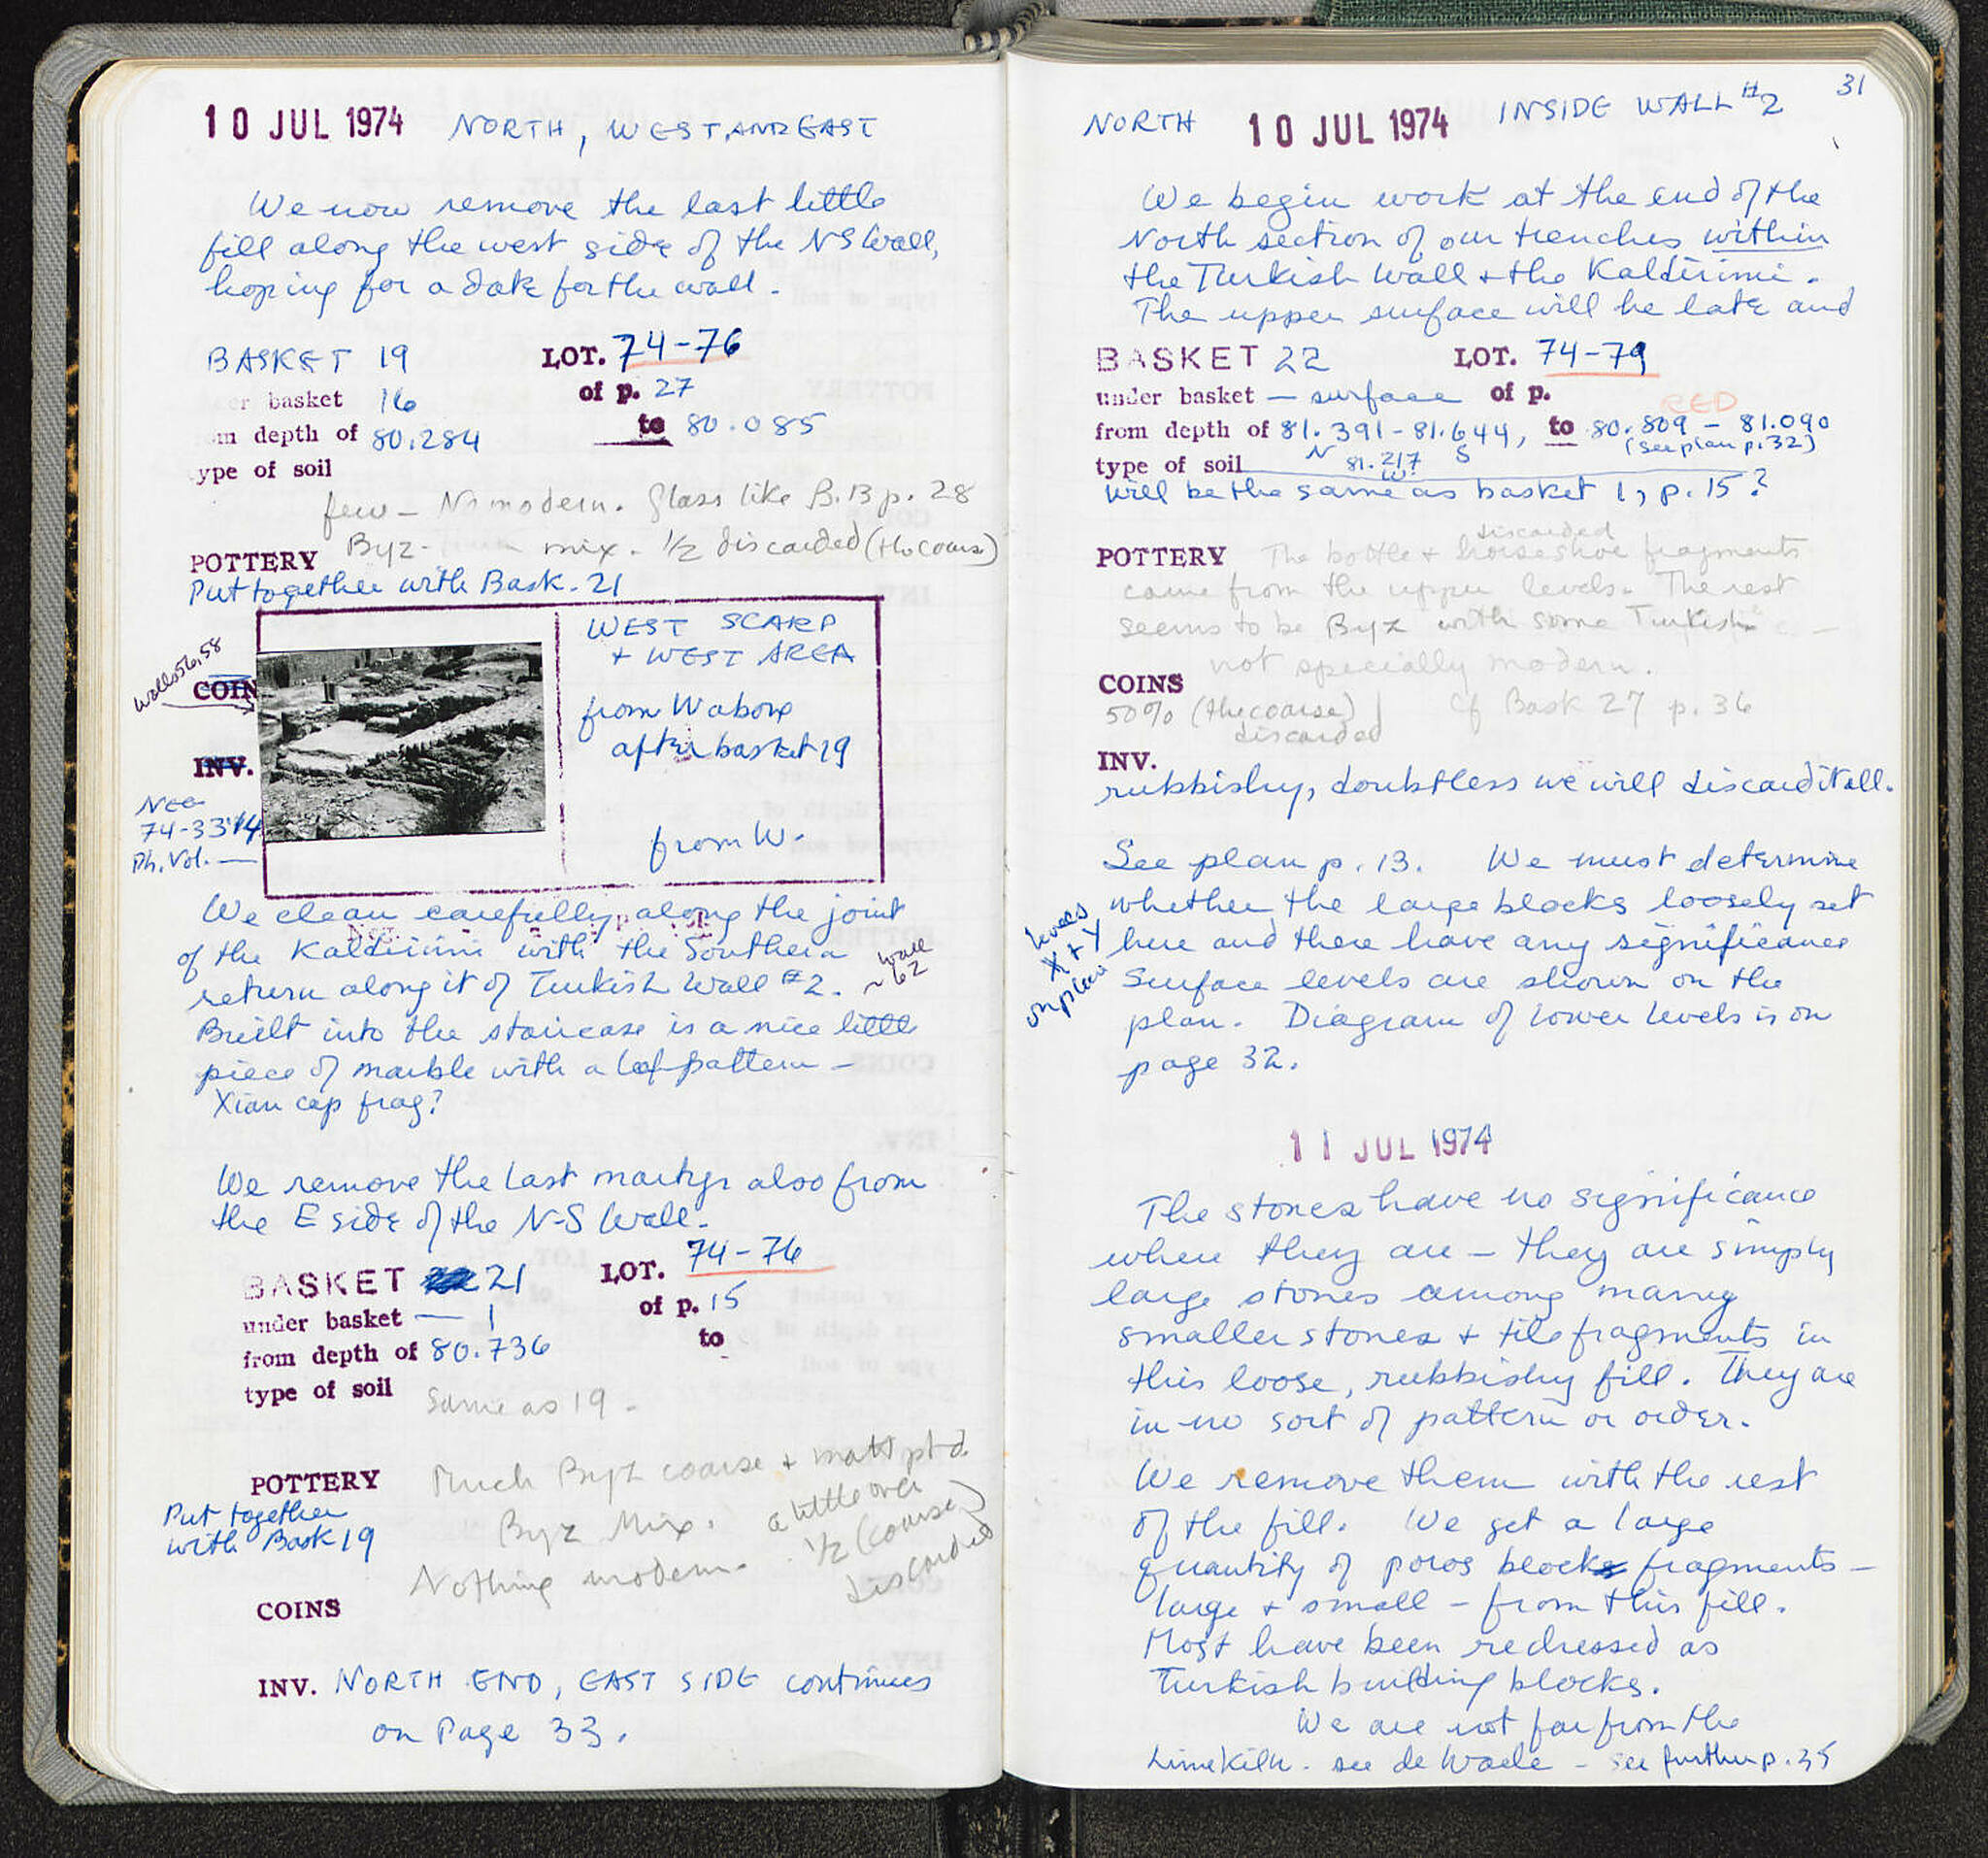 10 JUL 1974 NORTH, WEST, AND EAST
We now remove the last little
fill along the west side of the NS Wall,
hoping for a date for the wall.
BASKET 19 LOT. 74-76
er basket 16 of p. 27
om depth of 80.284 to 80.085
ype of soil
few - No modern. Glass like B.13 p. 28
Byz. mix. 1/2 discarded (the coarse)
POTTERY
Put together with Bask. 21
walls 56, 58
COIN
INV.
Neg
74-33 14
Ph. Vol. —
WEST SCARP
+ WEST AREA
from W above
after basket 19
from W.
We clean carefully along the joint
of the Kaldirimi with the Southern
return along it of Turkish Wall #2. ~ wall 62
Built into the staircase is a nice little
piece of marble with a leaf pattern -
Xian cap frag?
We remove the last martyr also from
the E side of the N-S Wall.
BASKET 21 LOT. 74-76
under basket — 1 of p. 15
from depth of 80.736 to
type of soil
Same as 19.
POTTERY Much Byz coarse + matt ptd
Byz Mix. a little over
1/2 (coarse)
discarded
Nothing modern.
Put together
with Bask 19
COINS
INV. NORTH END, EAST SIDE continues
on Page 33.
31
NORTH 10 JUL 1974 INSIDE WALL #2
We begin work at the end of the
North section of our trenches within
the Turkish Wall + the Kaldirimi.
The upper surface will be late and
BASKET 22 LOT. 74-79
under basket — surface of p.
RED
from depth of 81.391-81.644, to 80.809 - 81.090
N 81.217 S (see plan p. 32)
W
type of soil
will be the same as basket 1, p. 15?
discarded
POTTERY The bottle + horseshoe fragments
came from the upper levels. The rest
seems to be Byz with some Turkish -
not specially modern.
COINS
50% (the coarse) cf Bask 27 p. 36
discarded
INV.
rubbishy, doubtless we will discard it all.
See plan p. 13. We must determine
whether the large blocks loosely set
here and there have any significance
Surface levels are shown on the
plan. Diagram of lower levels is on
page 32.
levels
X + Y
on plan
11 JUL 1974
The stones have no significance
where they are - they are simply
large stones among many
smaller stones + tile fragments in
this loose, rubbishy fill. They are
in no sort of pattern or order.
We remove them with the rest
of the fill. We get a large
quantity of poros block fragments -
large + small - from this fill.
Most have been redressed as
Turkish building blocks.
We are not far from the
Limekiln. see de Waele - see further p. 35